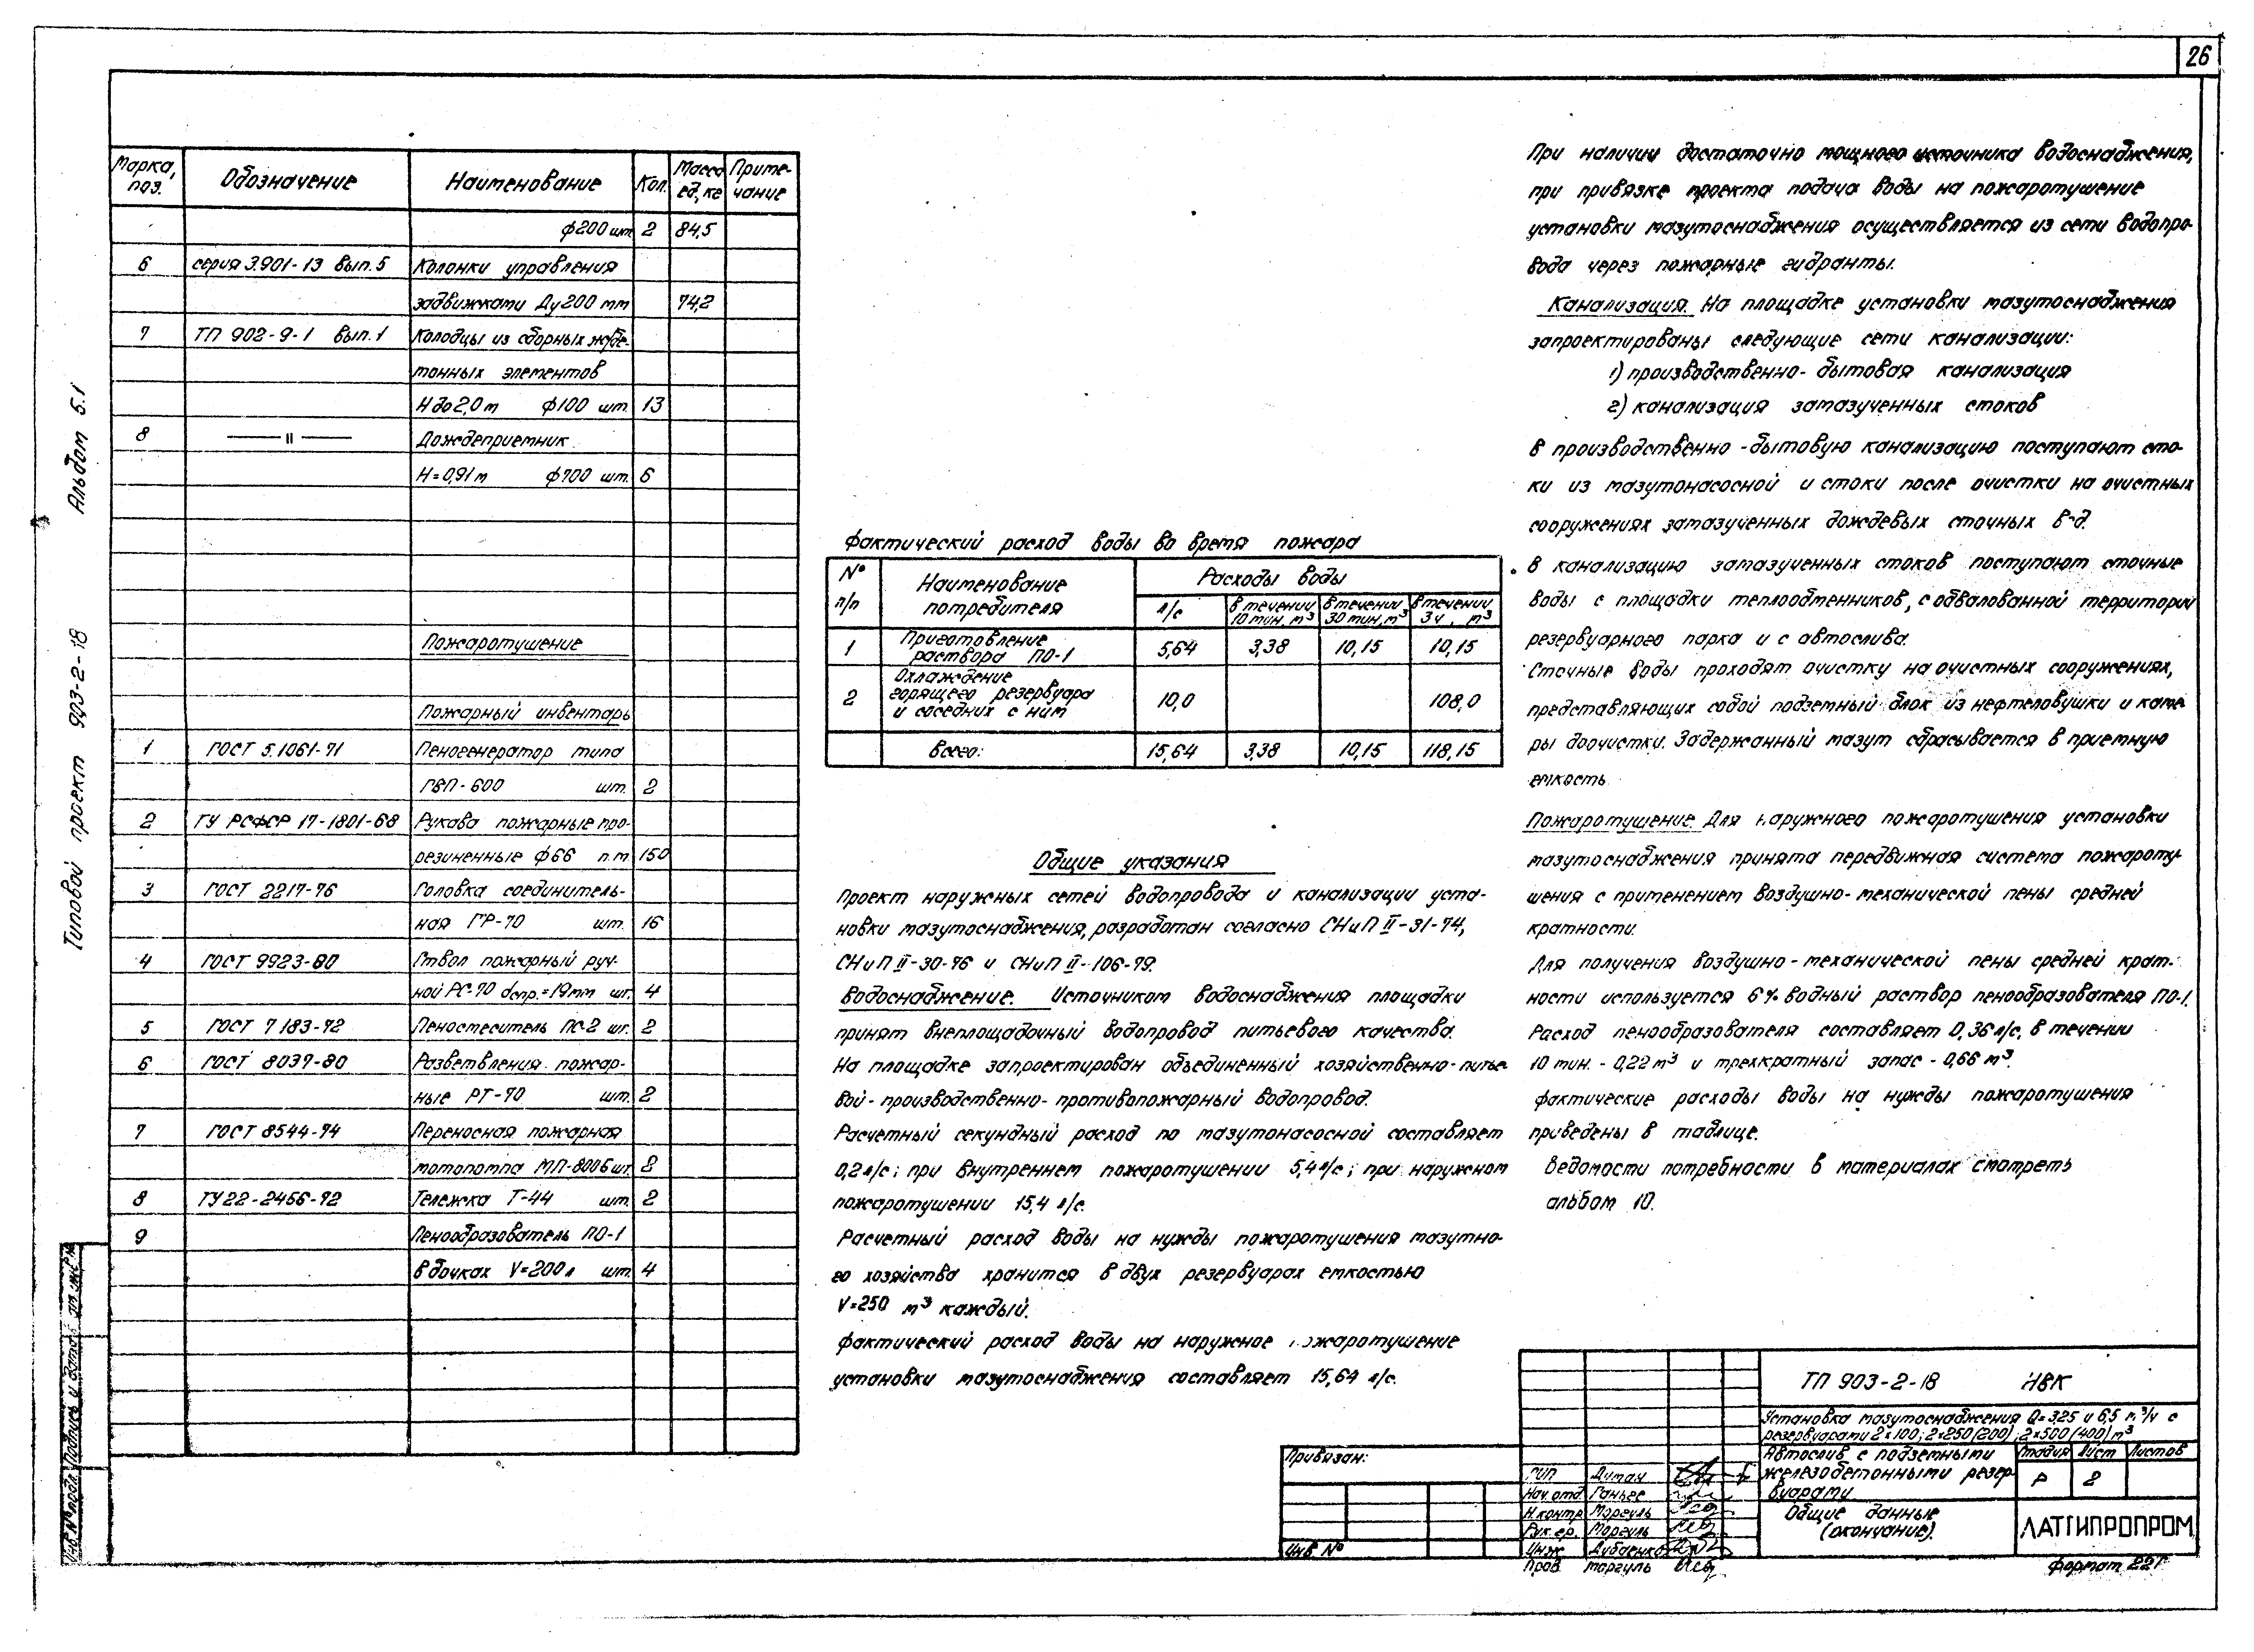 26
Альбом 5.1
Типовой проект 903-2-18
Марка, поз.
Обозначение
Наименование
Кол.
Масса ед, кг
Приме-чание
ф200 шт. 2 84,5
6 серия 3.901-13 вып. 5 Колонки управления
задвижками Ду 200 мм 74,2
7 ТП 902-9-1 вып. 1 Колодцы из сборных ж/бе-
тонных элементов
Н до 2,0 м ф100 шт. 13
8 — " — Дождеприемник
Н=0,91 м ф700 шт. 6
Пожаротушение
Пожарный инвентарь
1 ГОСТ 5.1061-71 Пеногенератор типа
ГВП-600 шт. 2
2 ТУ РСФСР 17-1801-68 Рукава пожарные про-
резиненные ф66 п.м 150
3 ГОСТ 2217-76 Головка соединитель-
ная ГР-70 шт. 16
4 ГОСТ 9923-80 Ствол пожарный руч-
ной РС-70 dспр.=19мм шт. 4
5 ГОСТ 7183-72 Пеносмеситель ПС-2 шт. 2
6 ГОСТ 8037-80 Разветвления пожар-
ные РТ-70 шт. 2
7 ГОСТ 8544-74 Переносная пожарная
мотопомпа МП-800Б шт. 2
8 ТУ 22-2466-72 Тележка Т-44 шт. 2
9 Пенообразователь ПО-1
в бочках V=200 л шт. 4
Фактический расход воды во время пожара
№ п/п
Наименование потребителя
Расходы воды
л/с
в течении 10 мин, м³
в течении 30 мин, м³
в течении 3 ч, м³
1 Приготовление раствора ПО-1 5,64 3,38 10,15 10,15
2 Охлаждение горящего резервуара и соседних с ним 10,0 108,0
Всего: 15,64 3,38 10,15 118,15
Общие указания
Проект наружных сетей водопровода и канализации уста-
новки мазутоснабжения, разработан согласно СНиП II-31-74,
СНиП II-30-76 и СНиП II-106-79.
Водоснабжение. Источником водоснабжения площадки
принят внеплощадочный водопровод питьевого качества.
На площадке запроектирован объединенный хозяйственно-питье
вой-производственно-противопожарный водопровод.
Расчетный секундный расход по мазутонасосной составляет
0,2 л/с; при внутреннем пожаротушении 5,4 л/с; при наружном
пожаротушении 15,4 л/с.
Расчетный расход воды на нужды пожаротушения мазутно-
го хозяйства хранится в двух резервуарах емкостью
V=250 м³ каждый.
Фактический расход воды на наружное пожаротушение
установки мазутоснабжения составляет 15,64 л/с.
При наличии достаточно мощного источника водоснабжения,
при привязке проекта подача воды на пожаротушение
установки мазутоснабжения осуществляется из сети водопро-
вода через пожарные гидранты.
Канализация. На площадке установки мазутоснабжения
запроектированы следующие сети канализации:
1) производственно-бытовая канализация
2) канализация замазученных стоков
В производственно-бытовую канализацию поступают сто-
ки из мазутонасосной и стоки после очистки на очистных
сооружениях замазученных дождевых сточных вод.
В канализацию замазученных стоков поступают сточные
воды с площадки теплообменников, с обвалованной территории
резервуарного парка и с автослива.
Сточные воды проходят очистку на очистных сооружениях,
представляющих собой подземный блок из нефтеловушки и каме
ры доочистки. Задержанный мазут сбрасывается в приемную
емкость.
Пожаротушение. Для наружного пожаротушения установки
мазутоснабжения принята передвижная система пожароту-
шения с применением воздушно-механической пены средней
кратности.
Для получения воздушно-механической пены средней крат-
ности используется 6% водный раствор пенообразователя ПО-1.
Расход пенообразователя составляет 0,36 л/с, в течении
10 мин. - 0,22 м³ и трехкратный запас - 0,66 м³.
Фактические расходы воды на нужды пожаротушения
приведены в таблице.
Ведомости потребности в материалах смотреть
альбом 10.
Привязан:
Инв №
ГИП Думан
Нач. отд. Ганьес
Н.контр Моргуль
Рук.гр. Моргуль
Инж Дубаенко
Пров Моргуль
ТП 903-2-18 НВК
Установка мазутоснабжения Q=3,25 и 6,5 м³/ч с
резервуарами 2×100; 2×250(200); 2×500(400) м³
Автослив с подземными
железобетонными резер-
вуарами
Стадия Лист Листов
Р 2
Общие данные
(окончание).
ЛАТГИПРОПРОМ
Формат 22Г
Инв. № подл. Подпись и дата